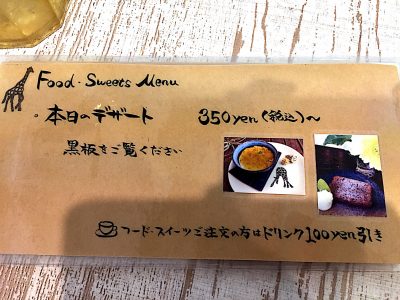 Food・Sweets Menu
・本日のデザート 350yen(税込)~
黒板をご覧ください
フード・スイーツご注文の方はドリンク100yen引き